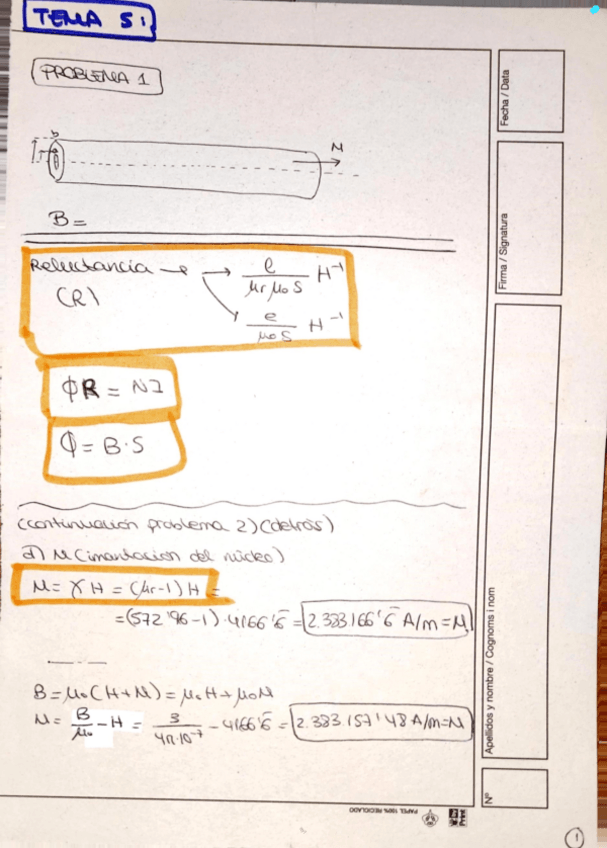 TEMA 5:
PROBLEMA 1
M
B =
Reluctancia → → e/(μr μ0 S) H⁻¹
(R) e/(μ0 S) H⁻¹
ΦR = NI
Φ = B·S
(continuación problema 2) (detrás)
d) M (imantación del núcleo)
M = χ H = (μr-1) H =
= (572'96-1)·4166'6̄ = 2.383166'6̄ A/m = M
B = μ0 (H+M) = μ0 H + μ0 M
M = B/μ0 - H = 3/(4π·10⁻⁷) - 4166'6̄ = 2.383.157'48 A/m = M
Fecha / Data
Firma / Signatura
Apellidos y nombre / Cognoms i nom
Nº
PAPEL 100% RECICLADO
1